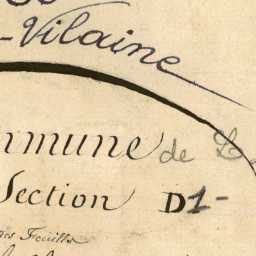 -Vilaine
mmune de L
Section D1-
Feuille